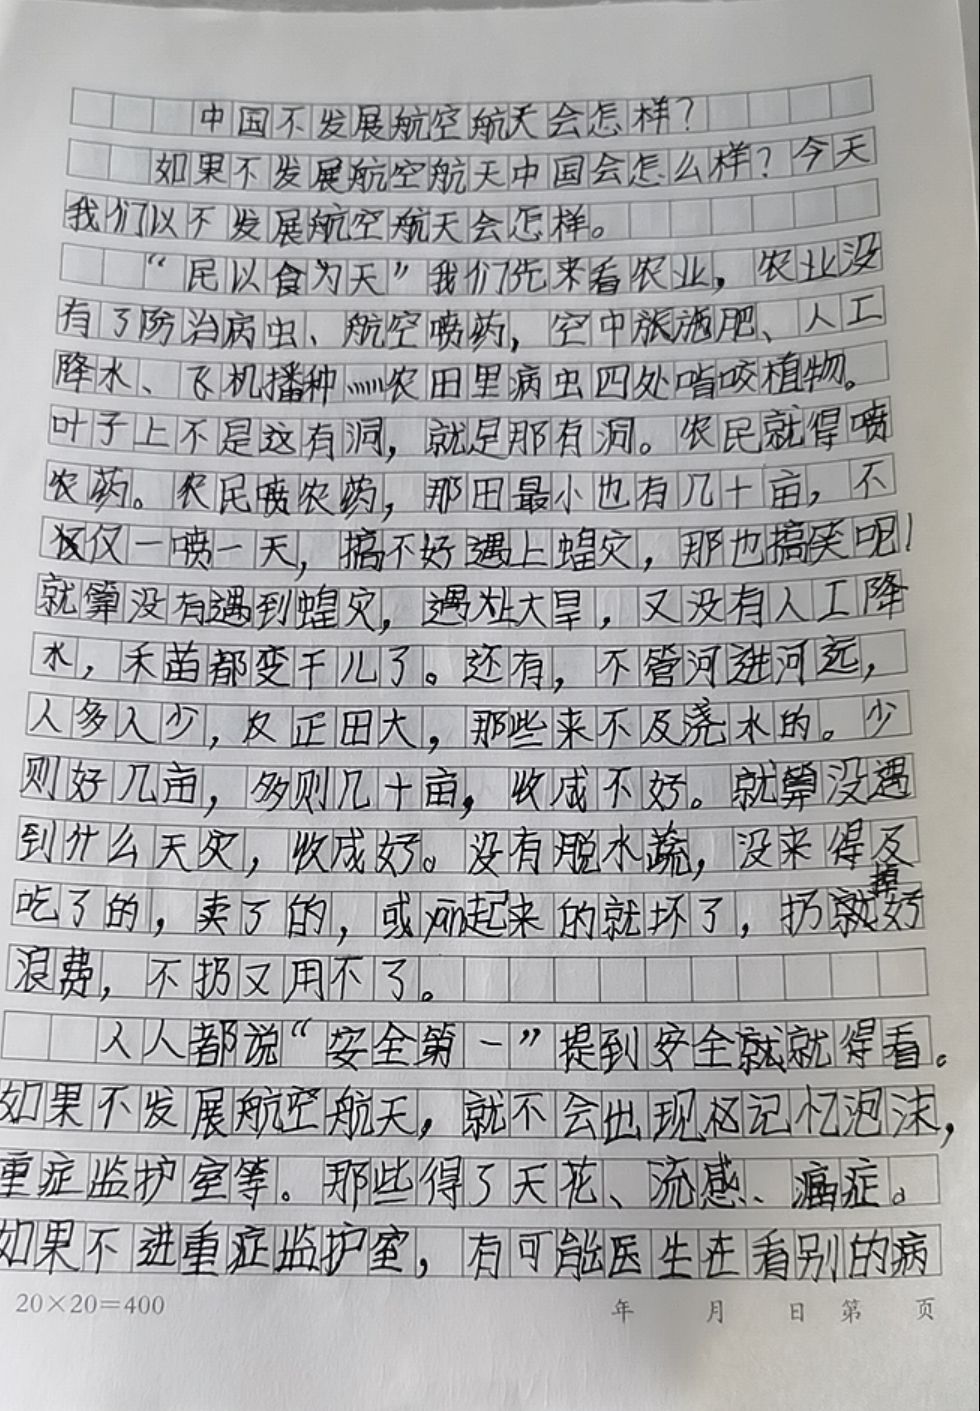 中国不发展航空航天会怎样？
如果不发展航空航天中国会怎么样？今天
我们以不发展航空航天会怎样。
“民以食为天”我们先来看农业，农业没
有了防治病虫、航空喷药，空中施肥、人工
降水、飞机播种……农田里病虫四处啃咬植物。
叶子上不是这有洞，就是那有洞。农民就得喷
农药。农民喷农药，那田最小也有几十亩，不
仅一喷一天，搞不好遇上蝗灾，那也搞笑呢！
就算没有遇到蝗灾，遇上大旱，又没有人工降
水，禾苗都变干儿了。还有，不管河进河远，
人多人少，反正田大，那些来不及浇水的。少
则好几亩，多则几十亩，收成不好。就算没遇
到什么天灾，收成好。没有脱水蔬，没来得及
吃了的，卖了的，或 起来的就坏了，扔掉就好
浪费，不扔又用不了。
人人都说“安全第一”提到安全就就得看。
如果不发展航空航天，就不会出现枢记忆泡沫，
重症监护室等。那些得了天花、流感、癌症。
如果不进重症监护室，有可能医生在看别的病
20×20=400 年 月 日 第 页